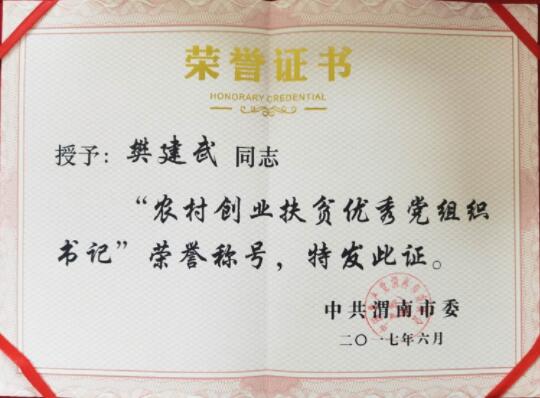 荣誉证书
HONORARY CREDENTIAL
授予：樊建武 同志
“农村创业扶贫优秀党组织
书记”荣誉称号，特发此证。
中共渭南市委
二〇一七年六月